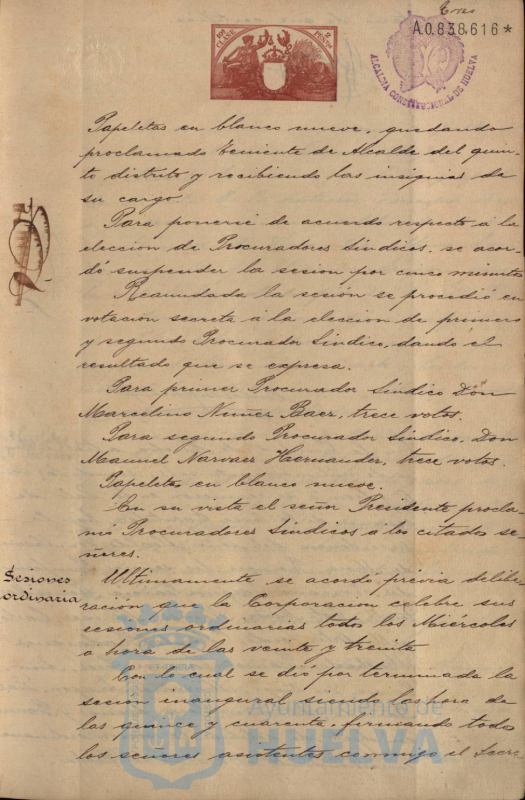 Tres
A.0.838.616*
10ª CLASE
2 PESETAS
ALCALDIA CONSTITUCIONAL DE HUELVA
Papeletas en blanco nueve, quedando
proclamado Teniente de Alcalde del quin-
to distrito y recibiendo las insignias de
su cargo.
Para ponerse de acuerdo respecto á la
eleccion de Procuradores Sindicos, se acor-
dó suspender la sesion por cinco minutos
Reanudada la sesión se procedió en
votacion secreta á la eleccion de primero
y segundo Procurador Sindico, dando el
resultado que se expresa.
Para primer Procurador Sindico Don
Marcelino Nuñez Baez, trece votos.
Para segundo Procurador Sindico, Don
Manuel Narvaez Hernandez, trece votos.
Papeletas en blanco nueve.
En su vista el señor Presidente procla-
mó Procuradores Sindicos á los citados se-
ñores.
Sesiones
ordinaria
Ultimamente se acordó previa delibe-
racion que la Corporacion celebre sus
sesiones ordinarias todos los Miercoles
á hora de las veinte y treinta
Con lo cual se dió por terminada la
sesion inaugural siendo la hora de
las quince y cuarenta, firmando todos
los señores asistentes conmigo el Secre
Ayuntamiento de
HUELVA